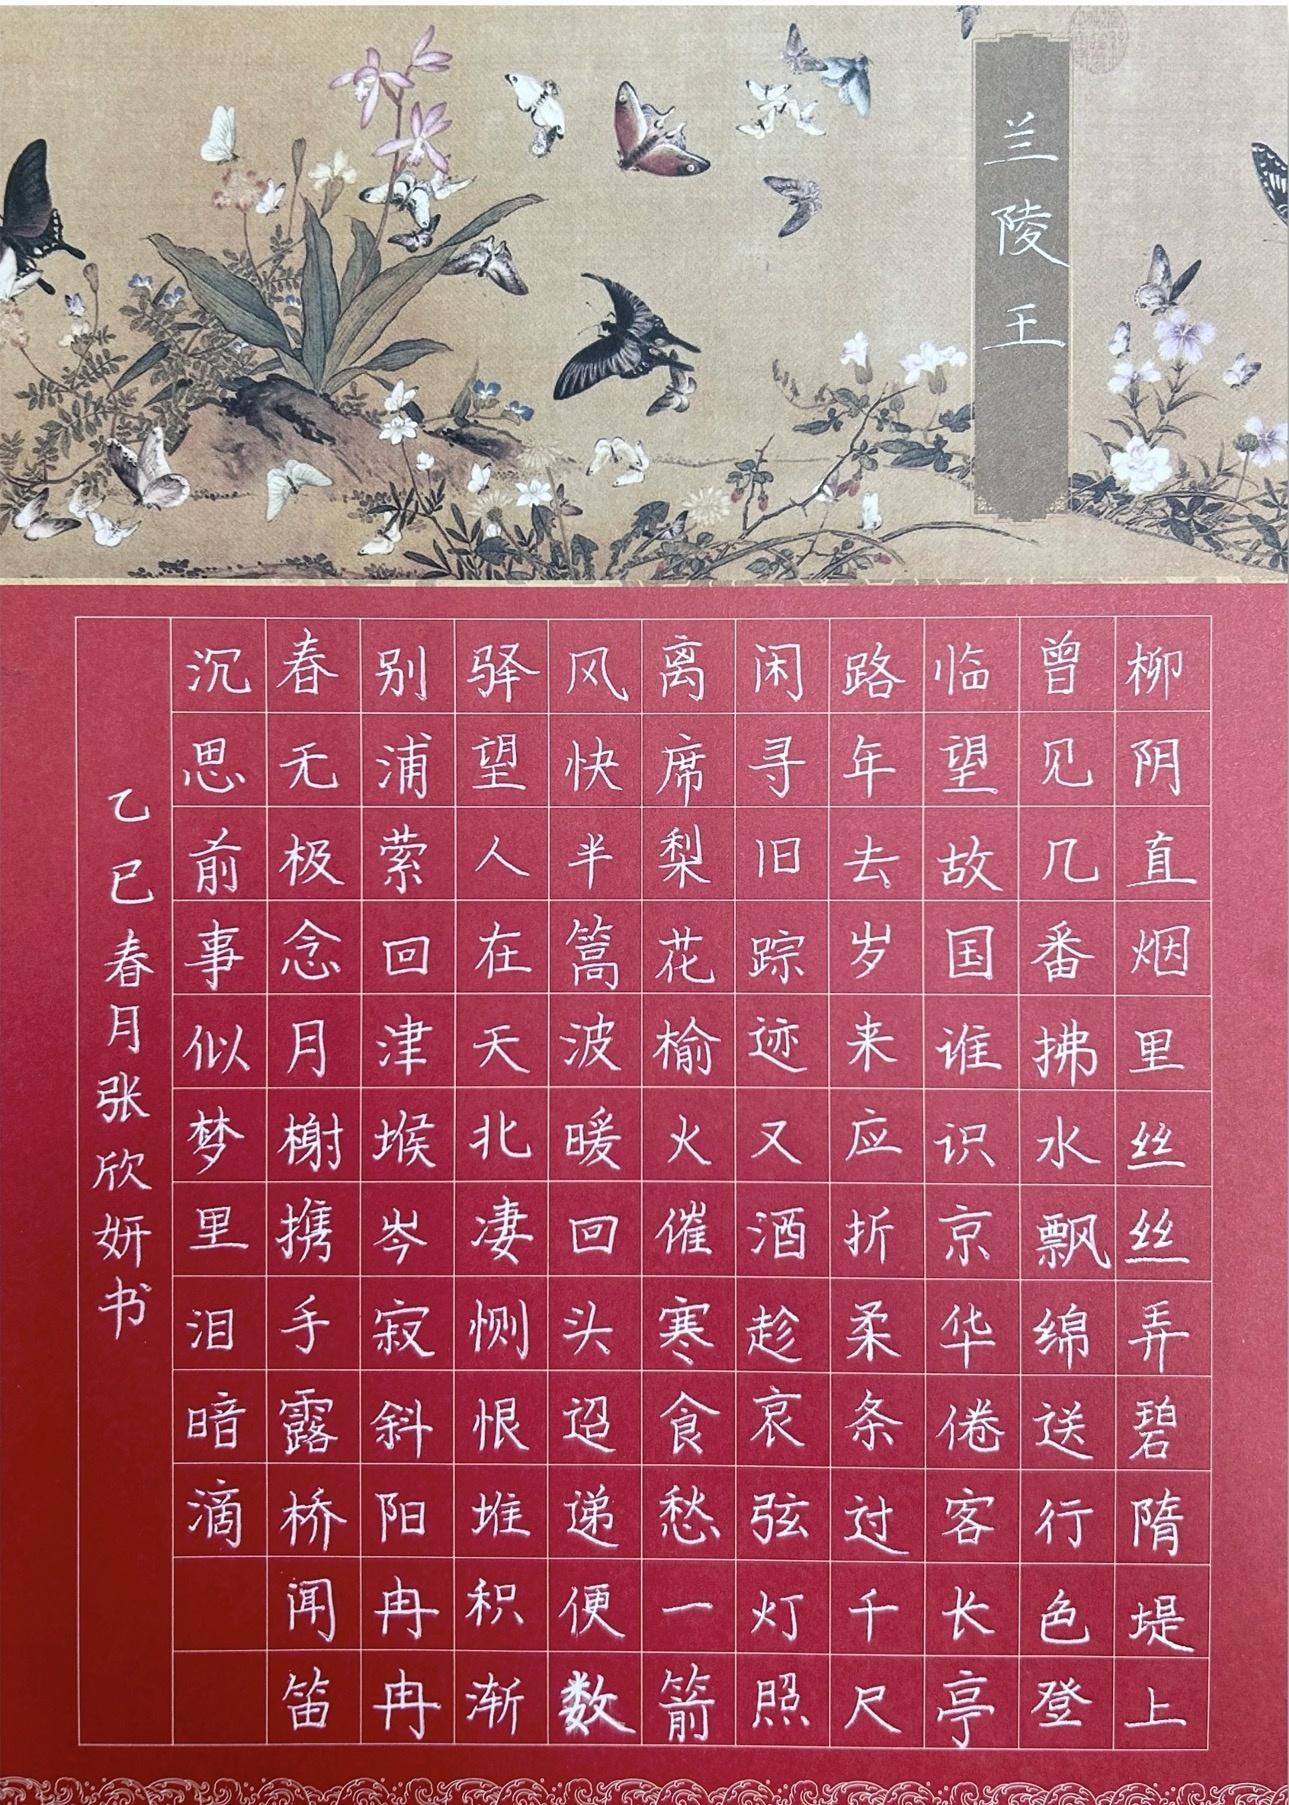 兰陵王
柳阴直烟里丝丝弄碧隋堤上
曾见几番拂水飘绵送行色登
临望故国谁识京华倦客长亭
路年去岁来应折柔条过千尺
闲寻旧踪迹又酒趁哀弦灯照
离席梨花榆火催寒食愁一箭
风快半篙波暖回头迢递便数
驿望人在天北凄恻恨堆积渐
别浦萦回津堠岑寂斜阳冉冉
春无极念月榭携手露桥闻笛
沉思前事似梦里泪暗滴
乙巳春月张欣妍书